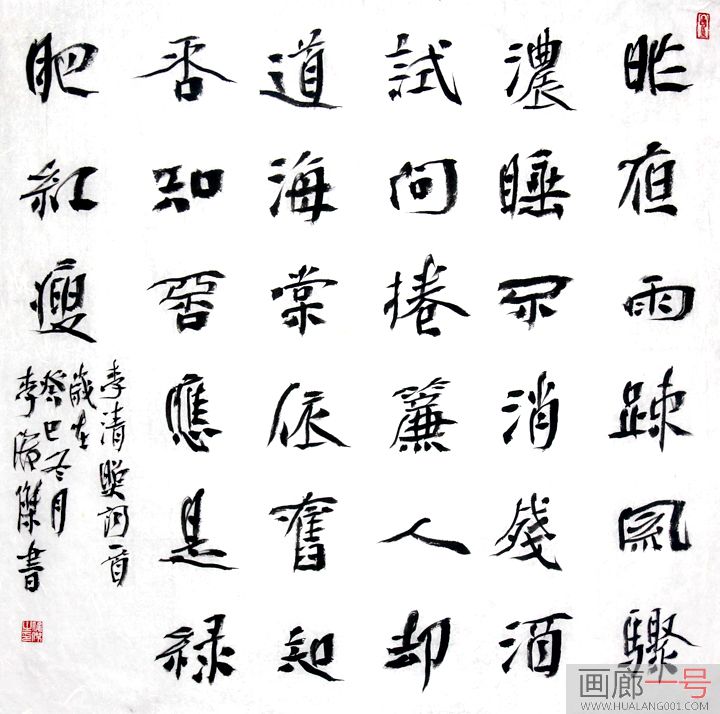 昨夜雨踈風驟
濃睡不消殘酒
試問捲簾人却
道海棠依舊知
否知否應是緑
肥紅瘦
李清照詞一首
歲在
癸巳冬月
李傑書
画廊一号
WWW.HUALANG001.COM